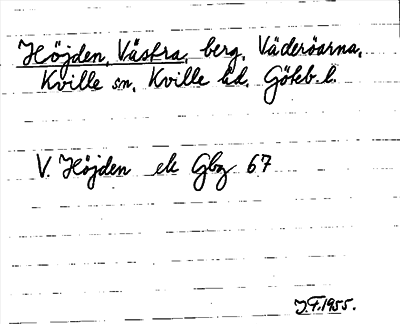 Höjden, Västra, berg, Väderöarna,
Kville sn, Kville hd, Göteb. l.
V. Höjden ek Gbg 67
J.F. 1955.